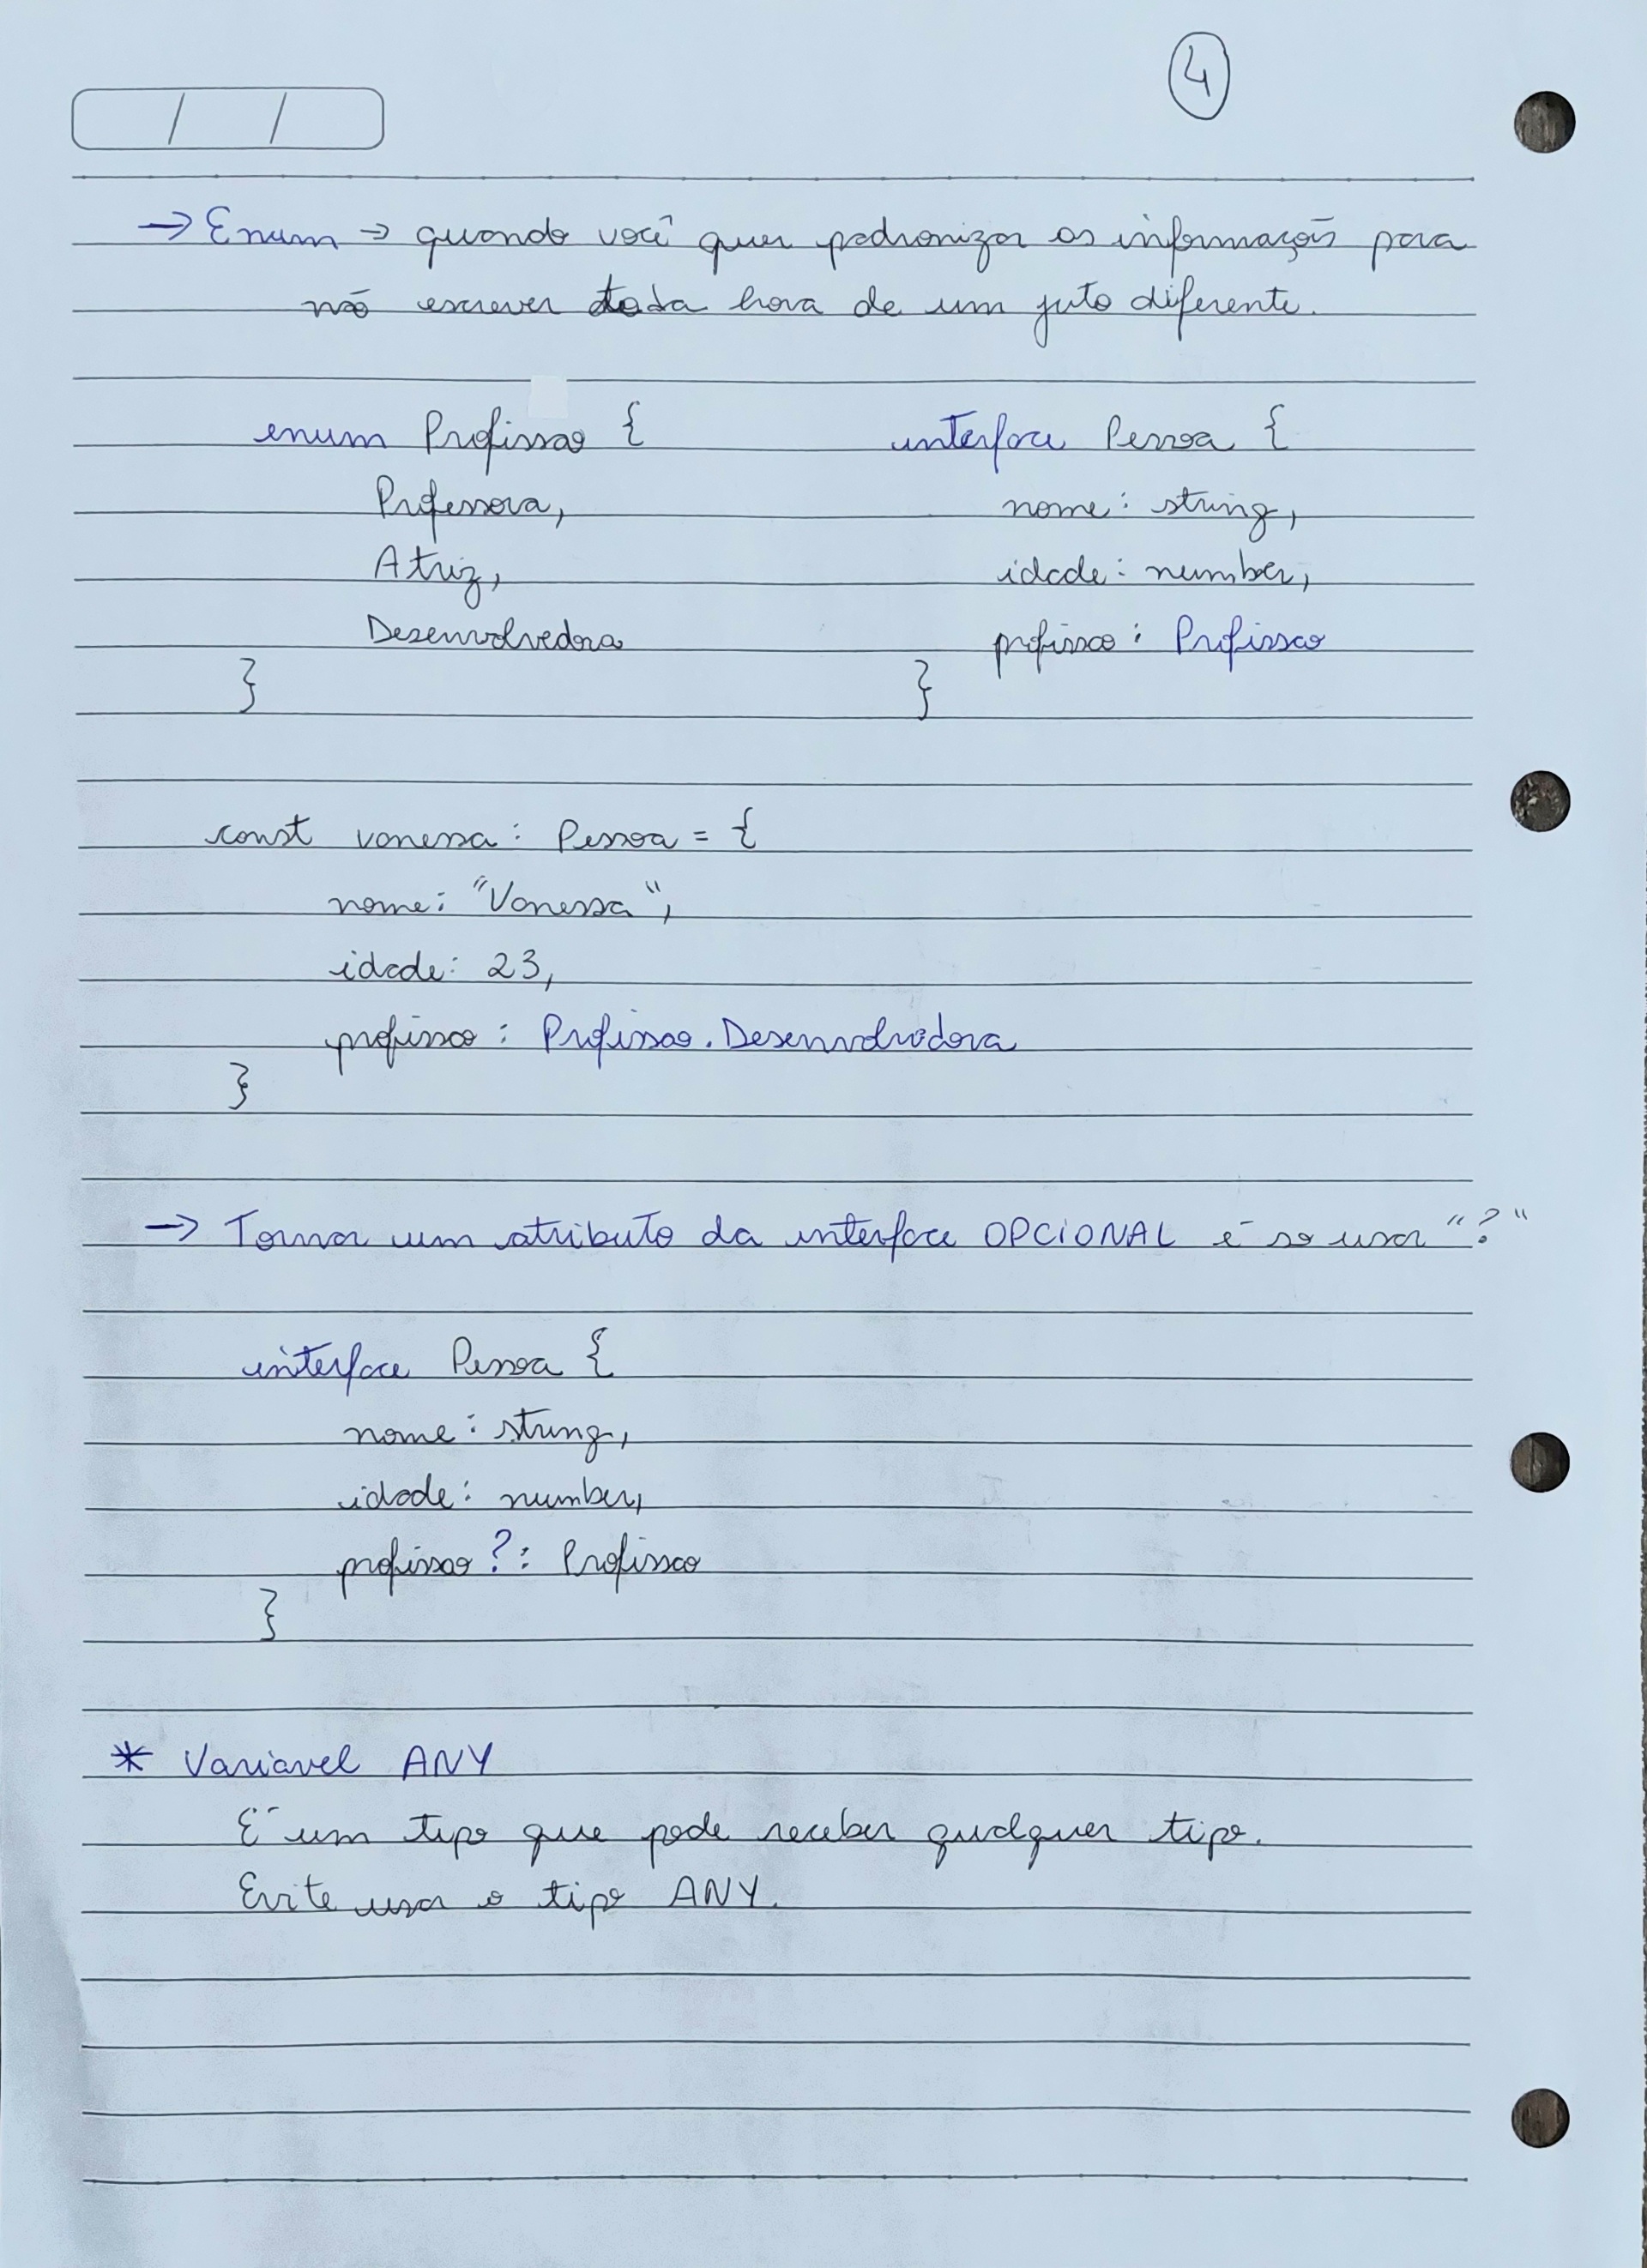 4
/ /
→ Enum → quando você quer padronizar as informações para
não escrever toda hora de um jeito diferente.
enum Profissao { interface Pessoa {
Professora, nome: string,
Atriz, idade: number,
Desenvolvedora profissao: Profissao
} }
const vanessa: Pessoa = {
nome: "Vanessa",
idade: 23,
profissao: Profissao.Desenvolvedora
}
→ Tornar um atributo da interface OPCIONAL é so usar "?"
interface Pessoa {
nome: string,
idade: number,
profissao?: Profissao
}
* Variavel ANY
É um tipo que pode receber qualquer tipo.
Evite usar o tipo ANY.